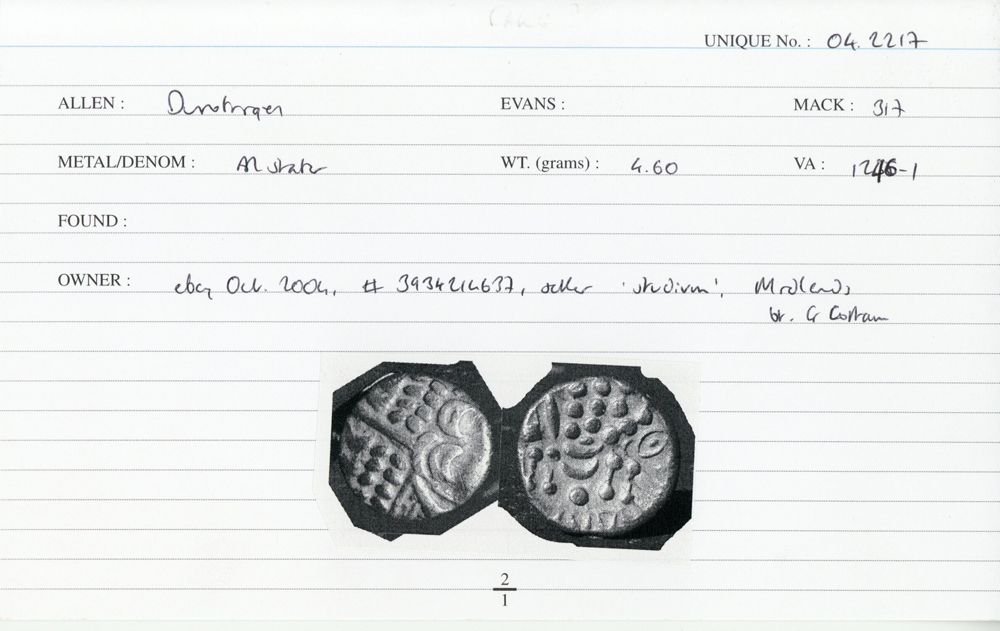 UNIQUE No. : 04.2217
ALLEN : Durotrigan EVANS : MACK : 317
METAL/DENOM : AR stater WT. (grams) : 4.60 VA : 1246-1
FOUND :
OWNER : ebay Oct. 2004, # 3934214637, seller 'studium', Midlands
bt. G Cottam
2
1